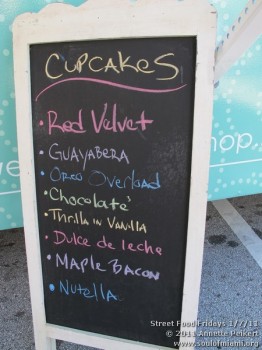 CUPCAKES
• Red Velvet
• GUAYABERA
• Oreo Overload
• Chocolate
• Thrilla in Vanilla
• Dulce de leche
• Maple Bacon
• Nutella
Street Food Fridays 1/7/11
© 2011 Annette Peikert
www.soulofmiami.org